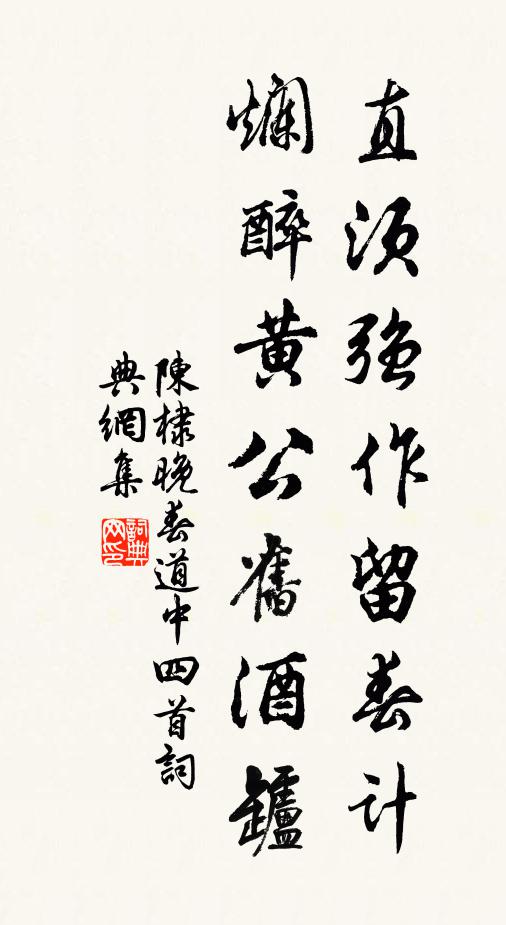 直須強作留春計
爛醉黃公舊酒罏
陳棣晚春道中四首詞
典網集
詞典網印